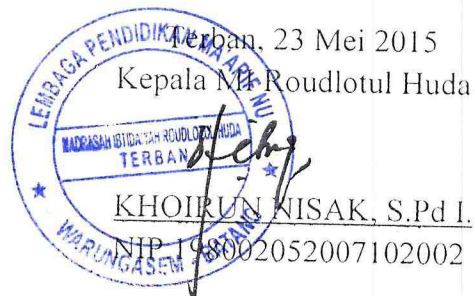 Terban, 23 Mei 2015
Kepala MI Roudlotul Huda
LEMBAGA PENDIDIKAN MA'ARIF NU
MADRASAH IBTIDAIYAH ROUDLOTUL HUDA
TERBAN
WARUNGASEM - BATANG
KHOIRUN NISAK, S.Pd I.
NIP 198002052007102002